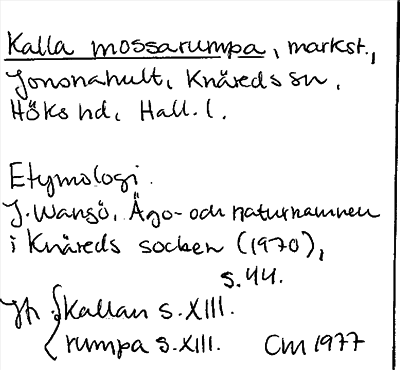 Kalla mossarumpa, markst.,
Jononahult, Knäreds sn,
Höks hd, Hall. l.
Etymologi.
J. Wangö, Ägo- och naturnamnen
i Knäreds socken (1970),
s. 44.
Jfr {kallan s. XIII.
rumpa s. XIII. CM 1977